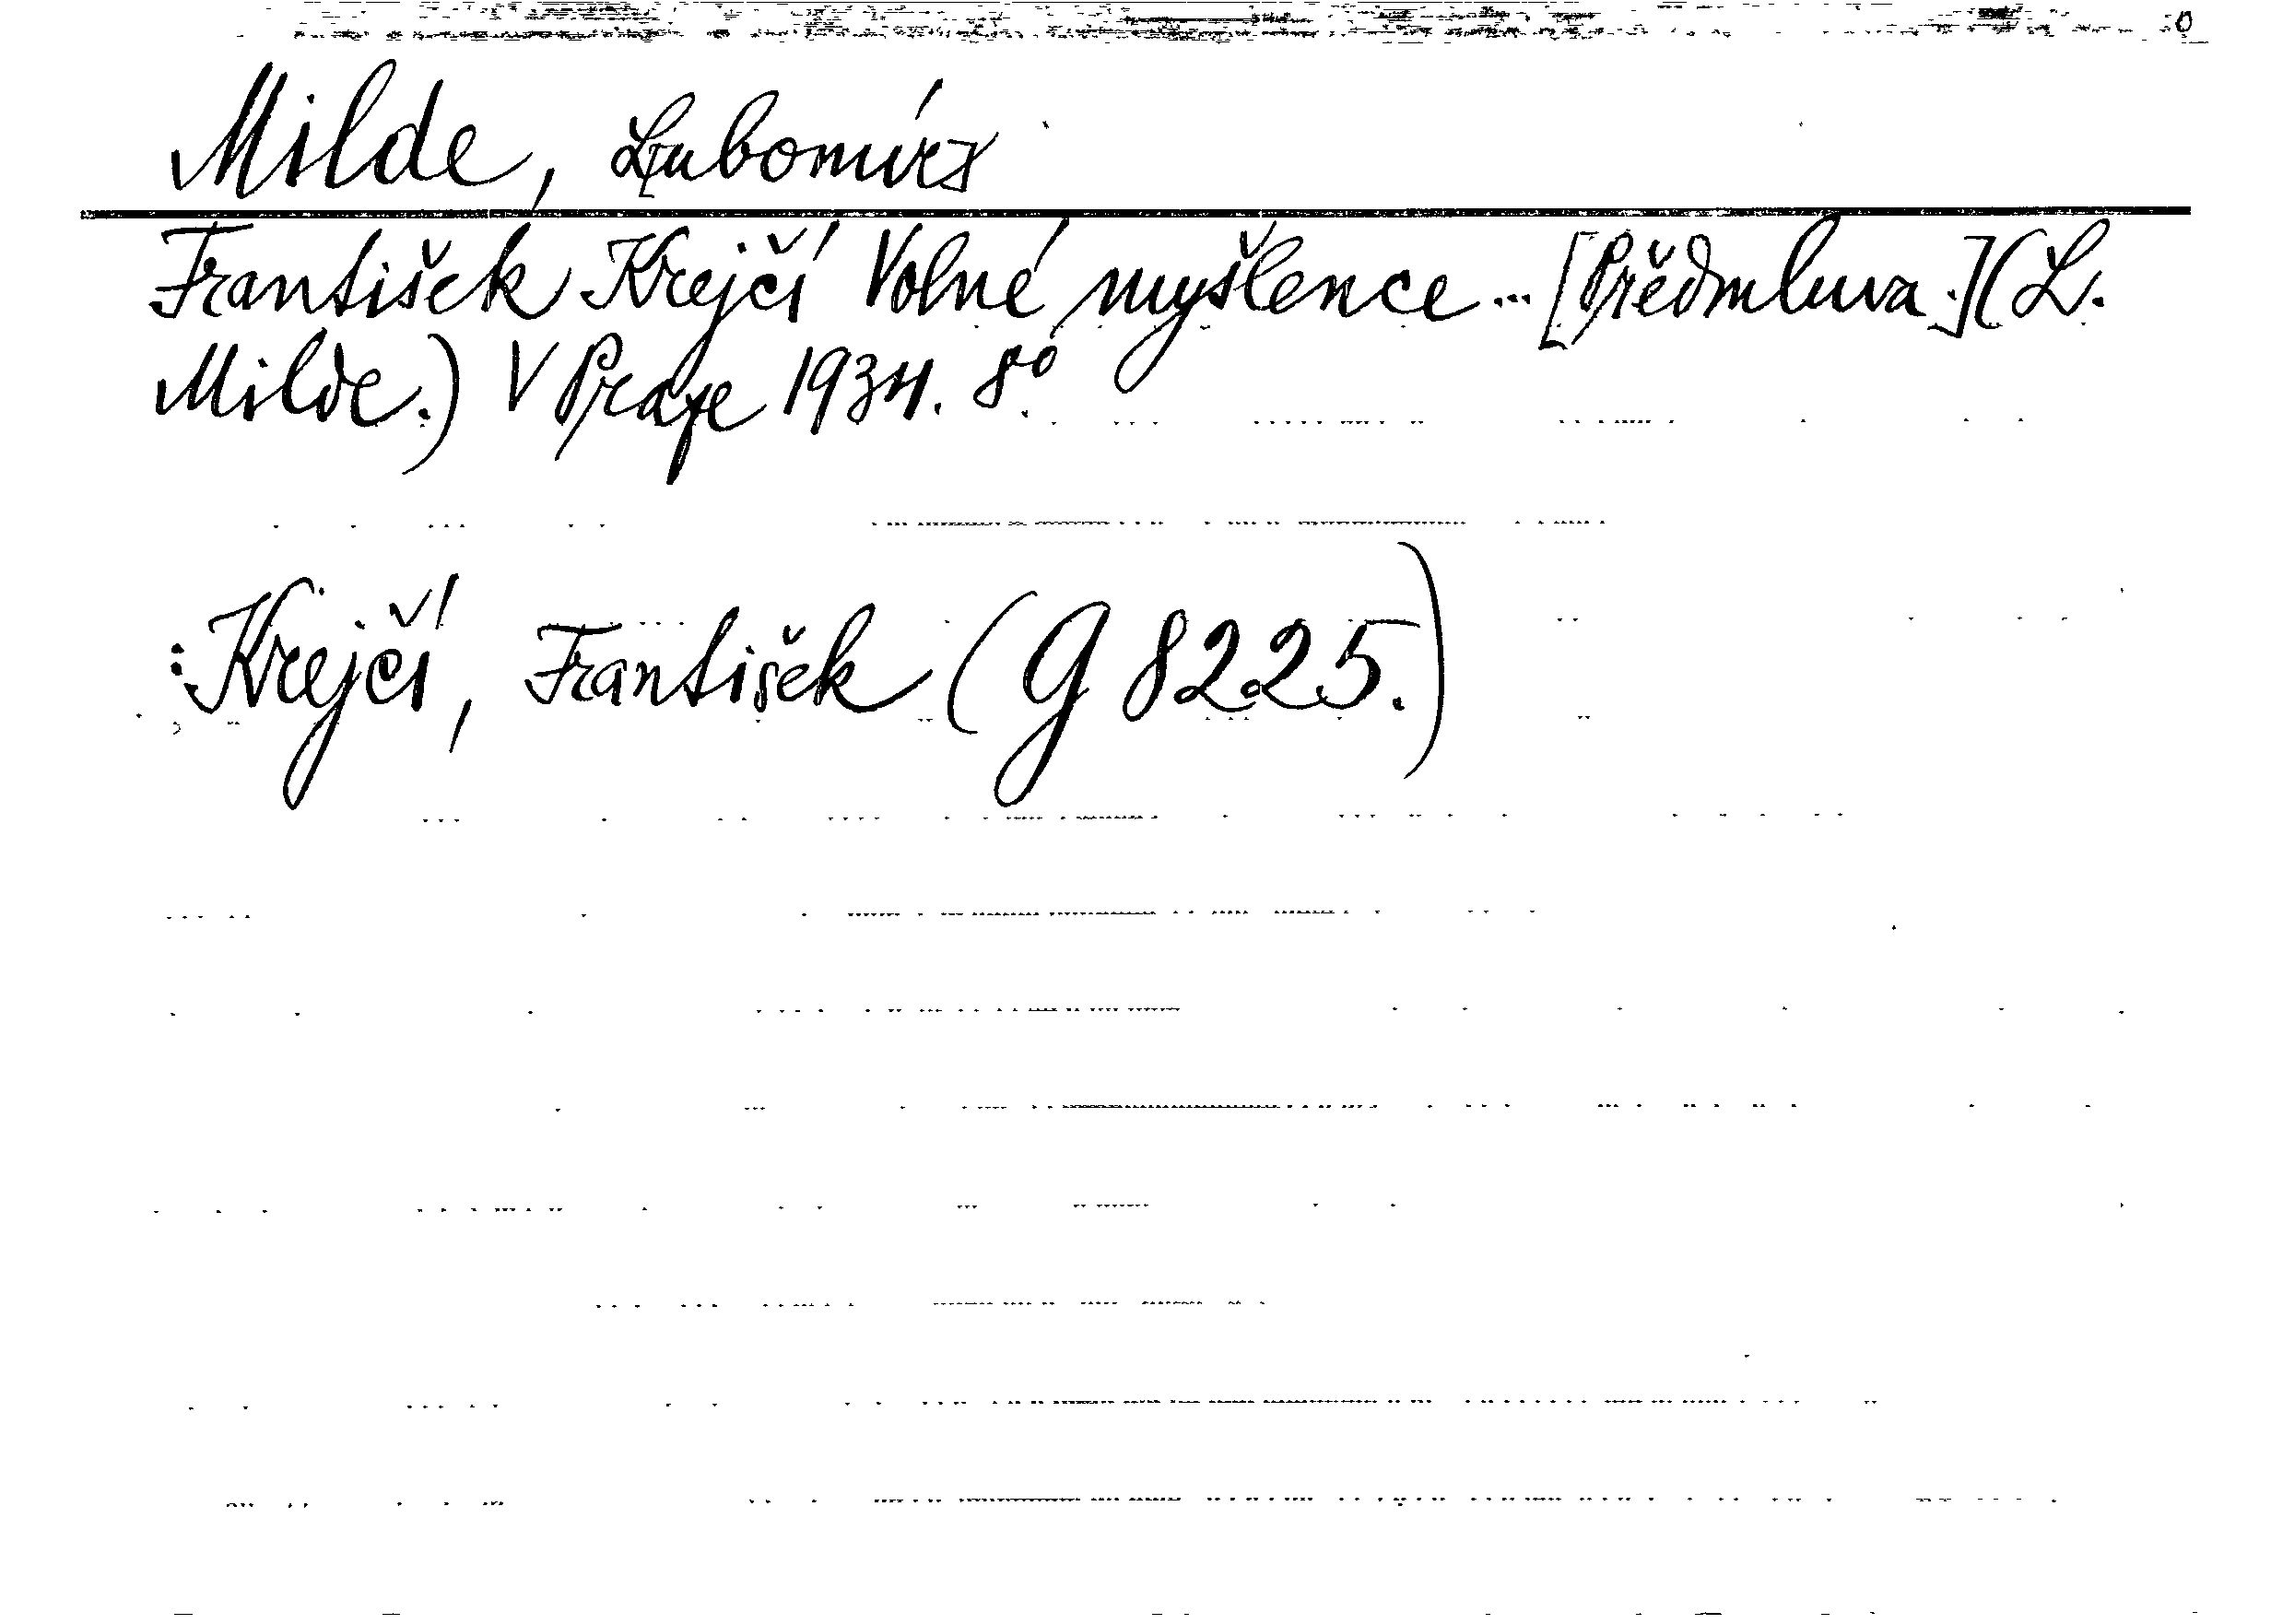 Milde, L[ubomír]
František Krejčí Volné myšlence... [Předmluva.] (L.
Milde.) V Praze 1934. 8°.
:Krejčí, František (G 8225.)